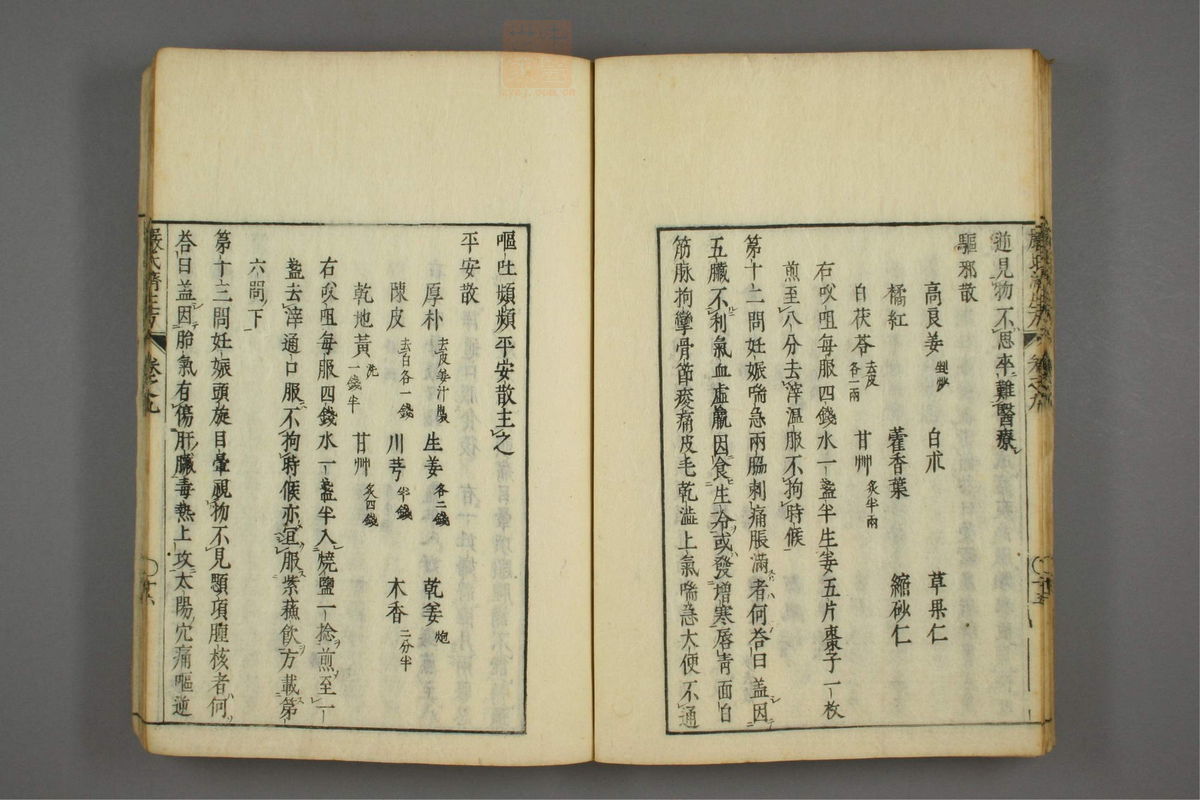 逆見物不思卒難醫療
驅邪散
高良姜 剉炒 白朮 草果仁
橘紅 藿香葉 縮砂仁
白茯苓 去皮各一兩 甘艸 炙半兩
右㕮咀每服四錢水一盞半生姜五片棗子一枚
煎至八分去滓溫服不拘時候
第十二問妊娠喘急兩脇刺痛脹滿者何荅曰盖因
五臟不利氣血虛羸因食生冷或發增寒唇青面白
筋脉拘攣骨節痠痛皮毛乾澁上氣喘急大便不通
嘔吐頻頻平安散主之
平安散
厚朴 去皮姜汁製 生姜 各二錢 乾姜 炮
陳皮 去白各一錢 川芎 半錢 木香 二分半
乾地黃 洗一錢半 甘艸 炙四錢
右㕮咀每服四錢水一盞半入燒鹽一捻煎至一
盞去滓通口服不拘時候亦宜服紫蘇飲方載第
六問下
第十三問妊娠頭旋目暈視物不見顋項腫核者何
荅曰盖因胎氣有傷肝臟毒熱上攻太陽穴痛嘔逆
嚴氏濟生方 卷之九 十六